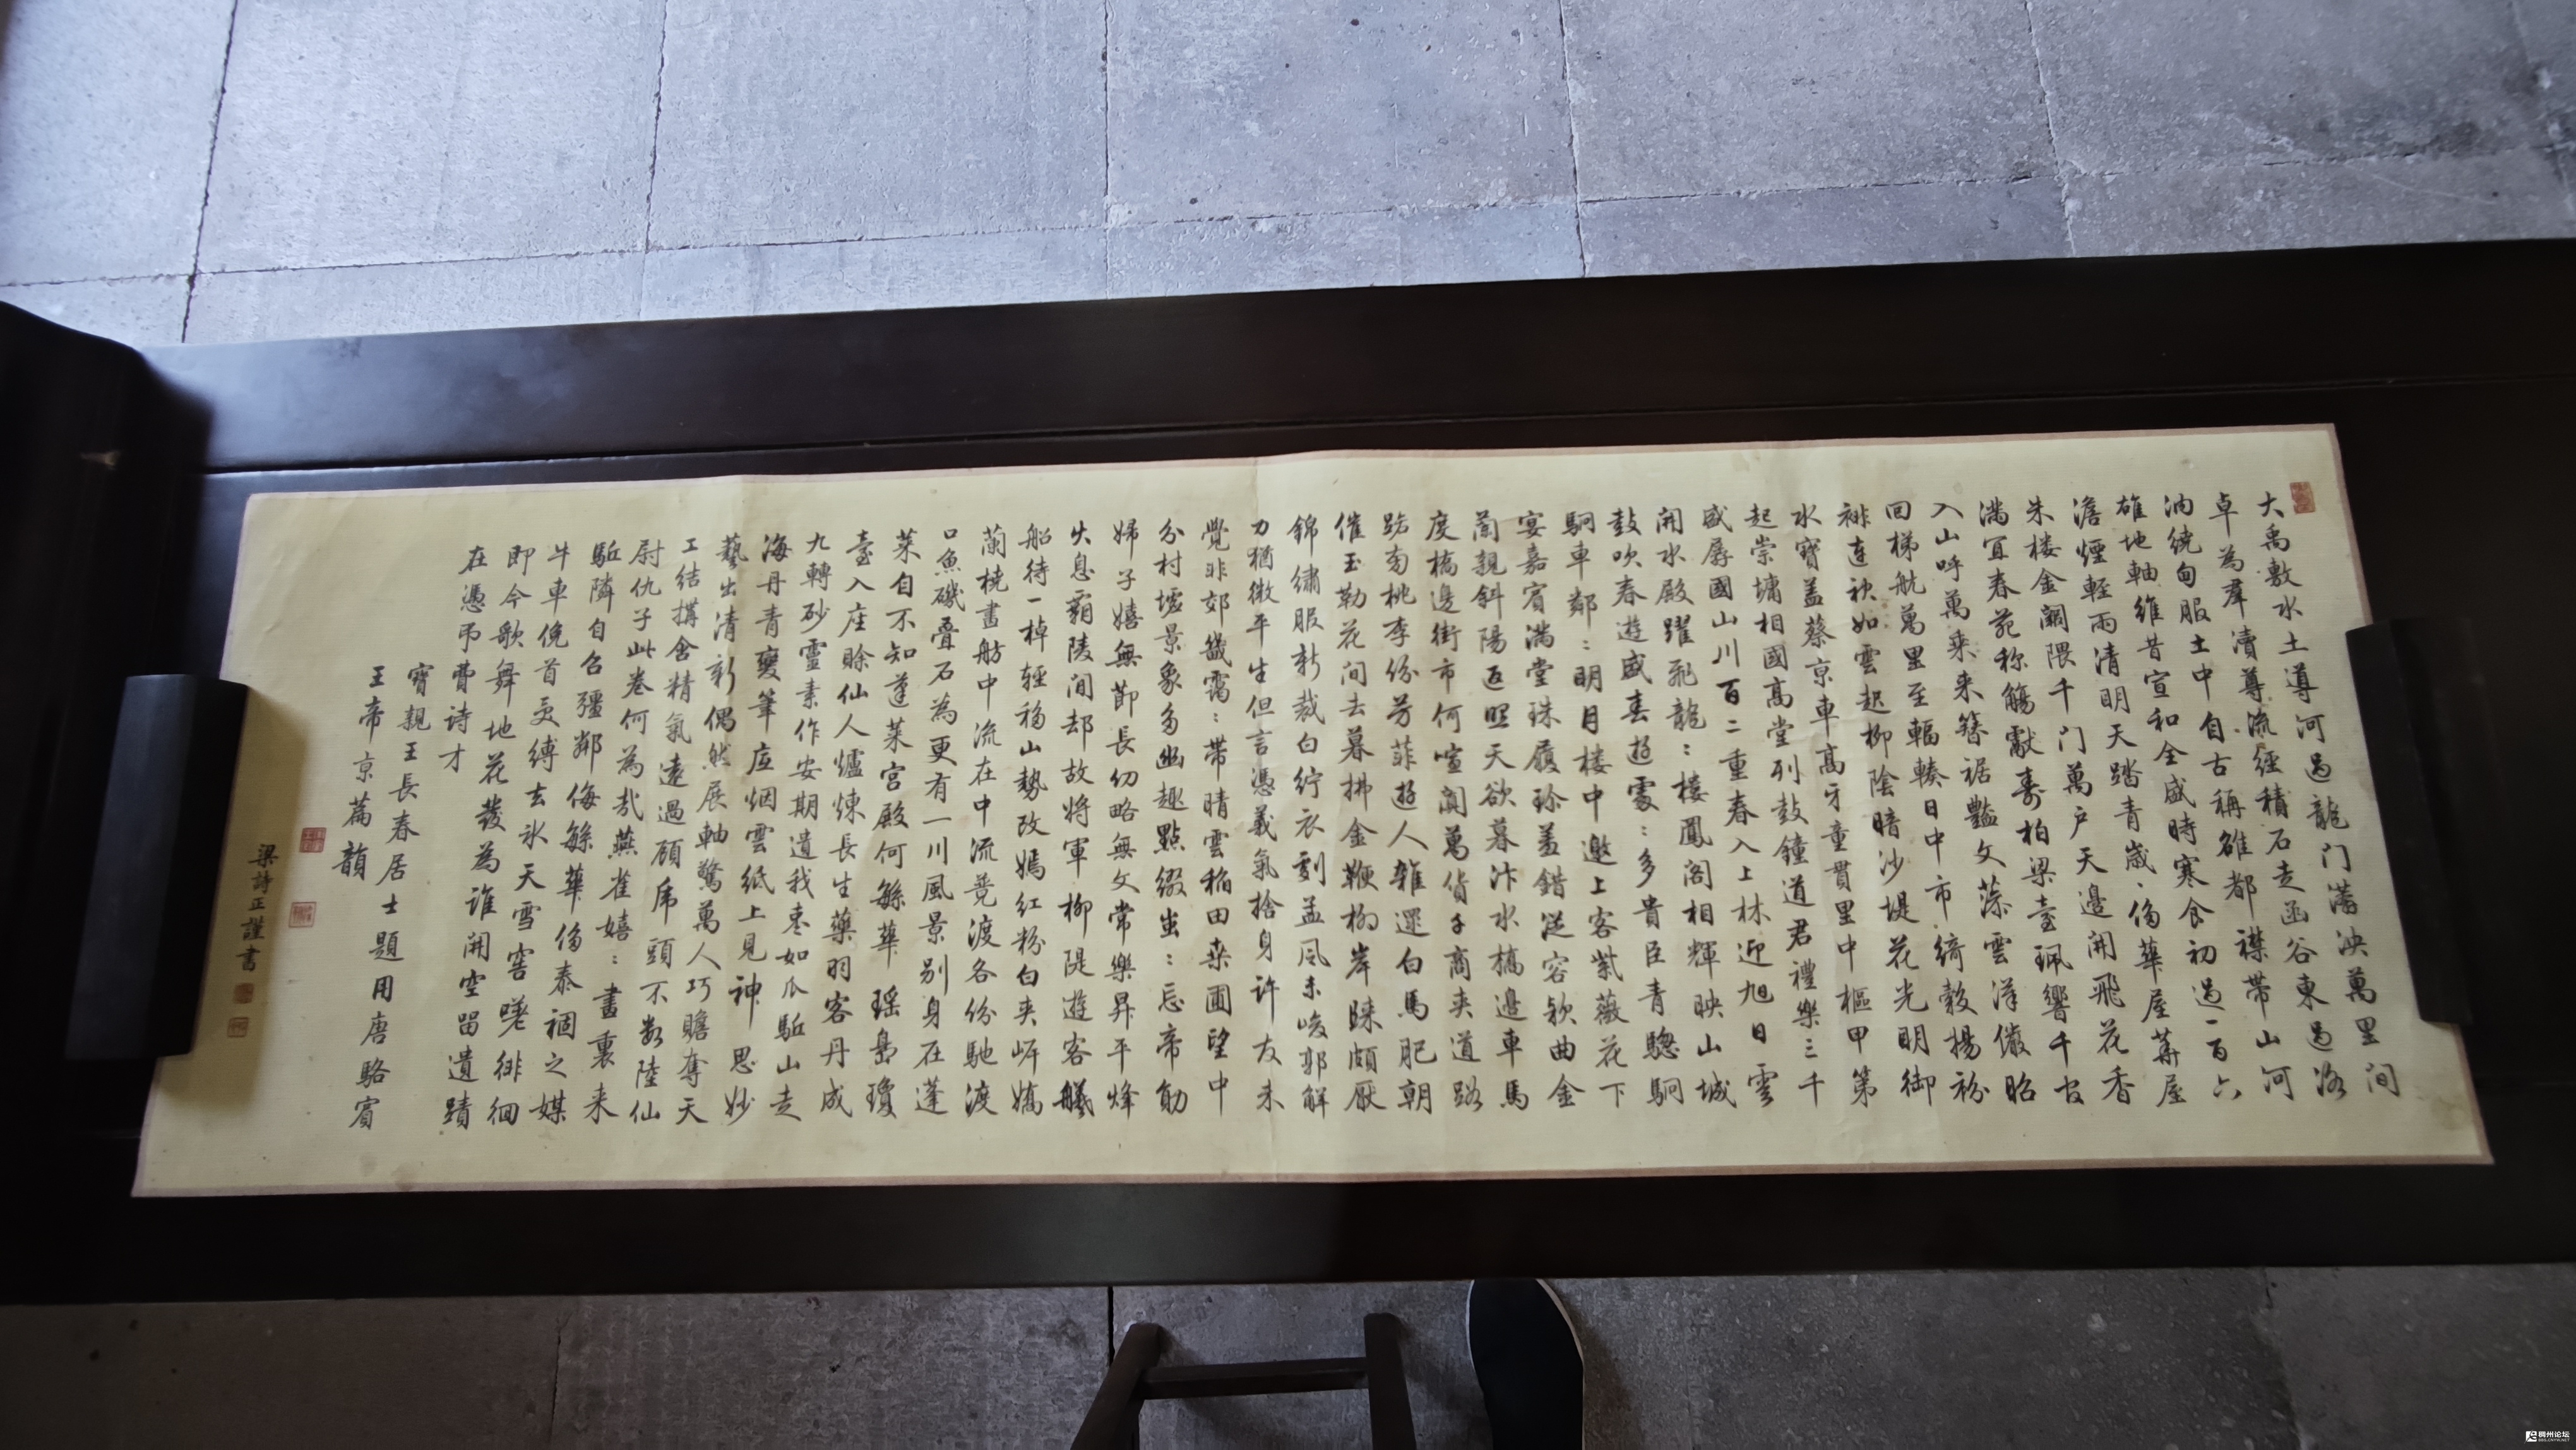 大禹敷水土導河過龍门蕩泱萬里间
卓為羣瀆尊流經積石走函谷東過洛
汭繞甸服土中自古稱雄都襟帶山河
雄地軸維昔宣和全盛時寒食初過一百六
澹煙輕雨清明天踏青歲〻侈華屋華屋
朱楼金闕隈千门萬户天邊開飛花香
滿宜春苑称觴獻壽柏梁臺珮響千官
入山呼萬来来簪裾豔文藻雲漢儼昭
回梯航萬里至輻輳日中市綺縠揚紛
裶連袂如雲起柳陰暗沙堤花光明御
水寶蓋蔡京車高牙童貫里中樞甲第
起崇墉相國高堂列鼓鐘道君禮樂三千
盛孱國山川百二重春入上林迎旭日雲
開水殿躍飛龍〻樓鳳阁相輝映山城
鼓吹春遊盛春遊處〻多貴臣青驄駉
駉車鄰〻明月楼中邀上客紫薇花下
宴嘉賓滿堂珠履珍羞錯從容欵曲金
蘭親斜陽返照天欲暮汴水橋邊車馬
度橋邊街市何喧闐萬貨千商夹道路
路旁桃李份芳菲遊人雜遝白馬肥朝
催玉勒花间去暮拂金鞭柳岸歸頗厭
錦繡服新裁白紵衣劉孟風未峻郭解
力猶微平生但言憑義氣捨身许友未
覺非郊畿靄〻带晴雲稲田桒圃望中
分村墟景象多幽趣點缀蚩〻忘帝勛
婦子嬉無節長幼略無文常樂昇平烽
火息霸陵间却故將軍柳隄遊客艤
船待一棹輕移山勢改嫣红粉白夹岍嬌
蘭橈畫舫中流在中流競渡各份馳渡
口魚磯叠石為更有一川風景别身在蓬
莱自不知蓬莱宫殿何緐華瑶島瓊
臺入座賒仙人爐煉長生藥羽客丹成
九轉砂靈素作安期遺我枣如瓜駈山走
海丹青變筆底烟雲紙上見神思妙
藝出清新偶然展軸驚萬人巧贍奪天
工結搆含精氣遠過顾虎頭不数陸仙
尉仇子此卷何為哉燕雀嬉〻畫裏来
駈隣自召彊鄰侮緐華侈泰禍之媒
牛車俛首受縛去氷天雪窖嗟徘徊
即今歌舞地花發為谁開空留遺蹟
在憑弔费诗才
寶親王長春居士題用唐駱賓
王帝京篇韻
梁詩正謹書
稠州论坛